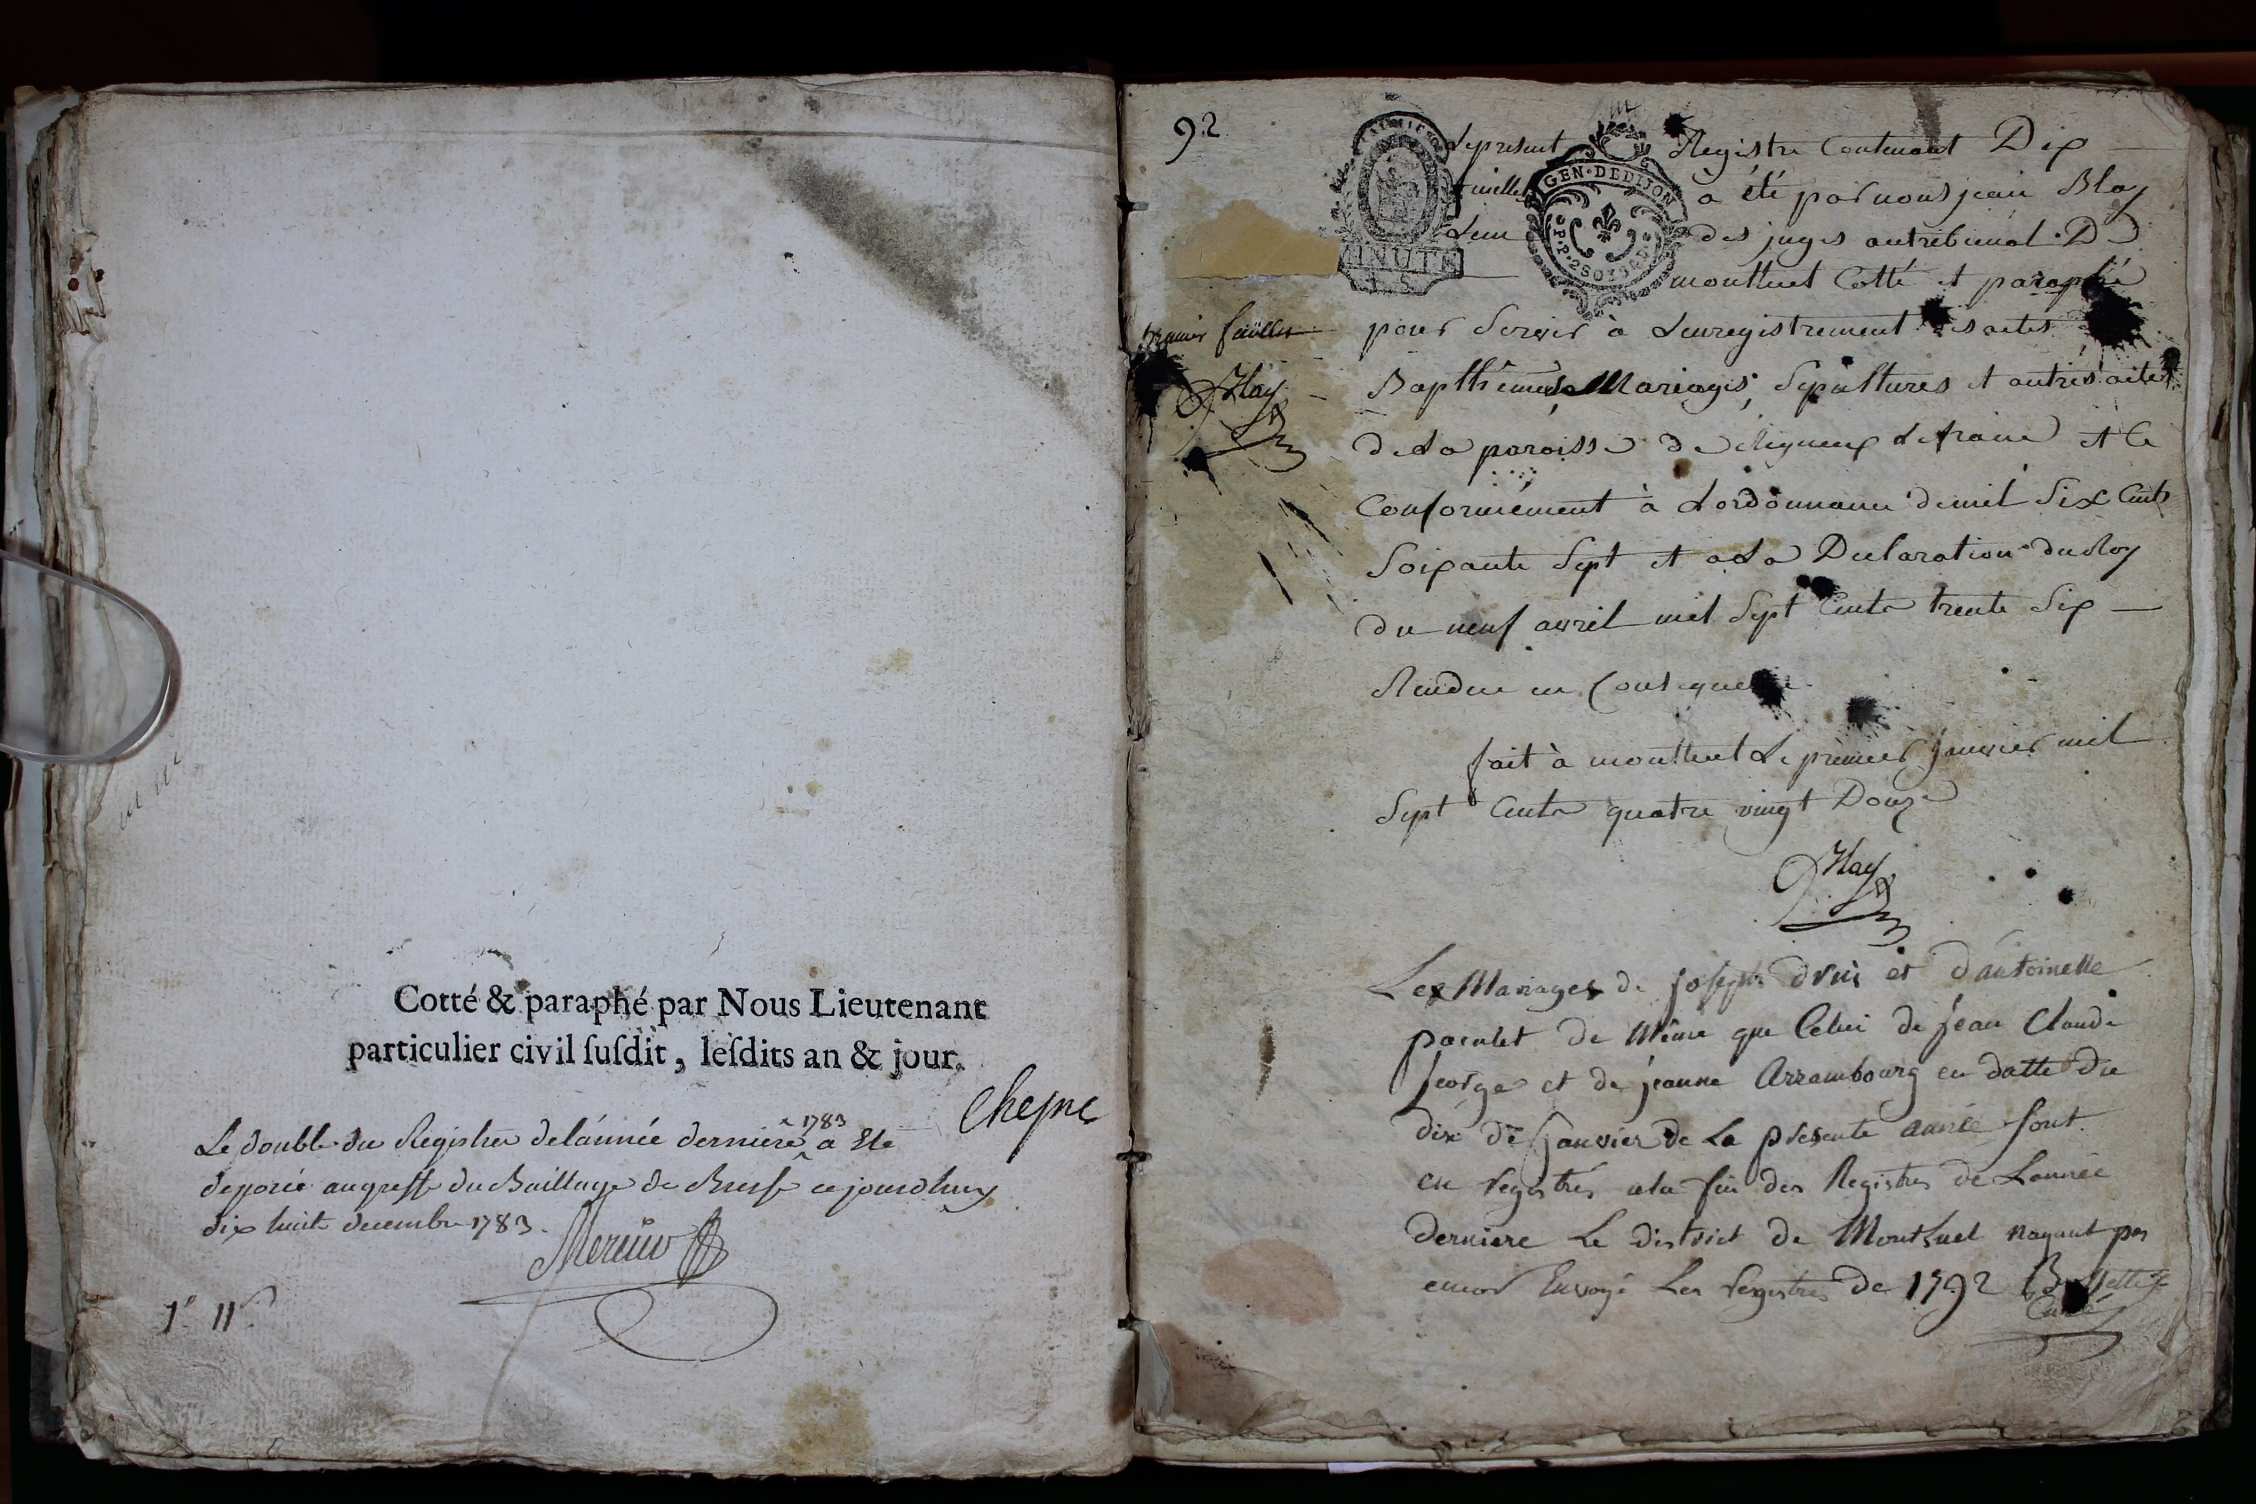 Cotté & paraphé par Nous Lieutenant
particulier civil ſuſdit, leſdits an & jour.
Chesne
Le double du Registre de l'année derniere 1783 a Eté
deposée au greffe du Bailliage de Bresse ce jourdhuy
dix huit decembre 1783.
1° 11
92
Le present Registre Contenant Dix
feuillets a été par nous jean
des juges au tribunal De
montluel Cotté et paraphé
premier feuillet
pour Servir à Lenregistrement des actes
Bapthêmes Mariages, Sepultures et autres actes
de La paroisse de et Ce
Conformément à Lordonnance de mil Six Cents
Soixante Sept et a La Declaration du Roy
du neuf avril mil Sept Cents trente Six
Rendue en Consequence
fait à montluel Le premier janvier mil
Sept Cents quatre vingt Douze
GEN·DE DIJON
MINUTE
Les Mariages de joseph et d'antoinette
de Même que Celui de jean Claude
george et de jeanne Arrambourg en datte du
dix de janvier de La presente année sont
en registrés a la fin des Registres de Lannée
derniere Le district de Montluel nayant pas
encor Envoyé Les registres de 1792
Curé